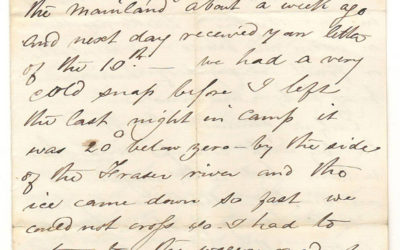 the mainland about a week ago
and next day received your letter
of the 10th — we had a very
cold snap before I left
the last night in camp it
was 20° below zero – by the side
of the Fraser river and the
ice came down so fast we
could not cross so I had to